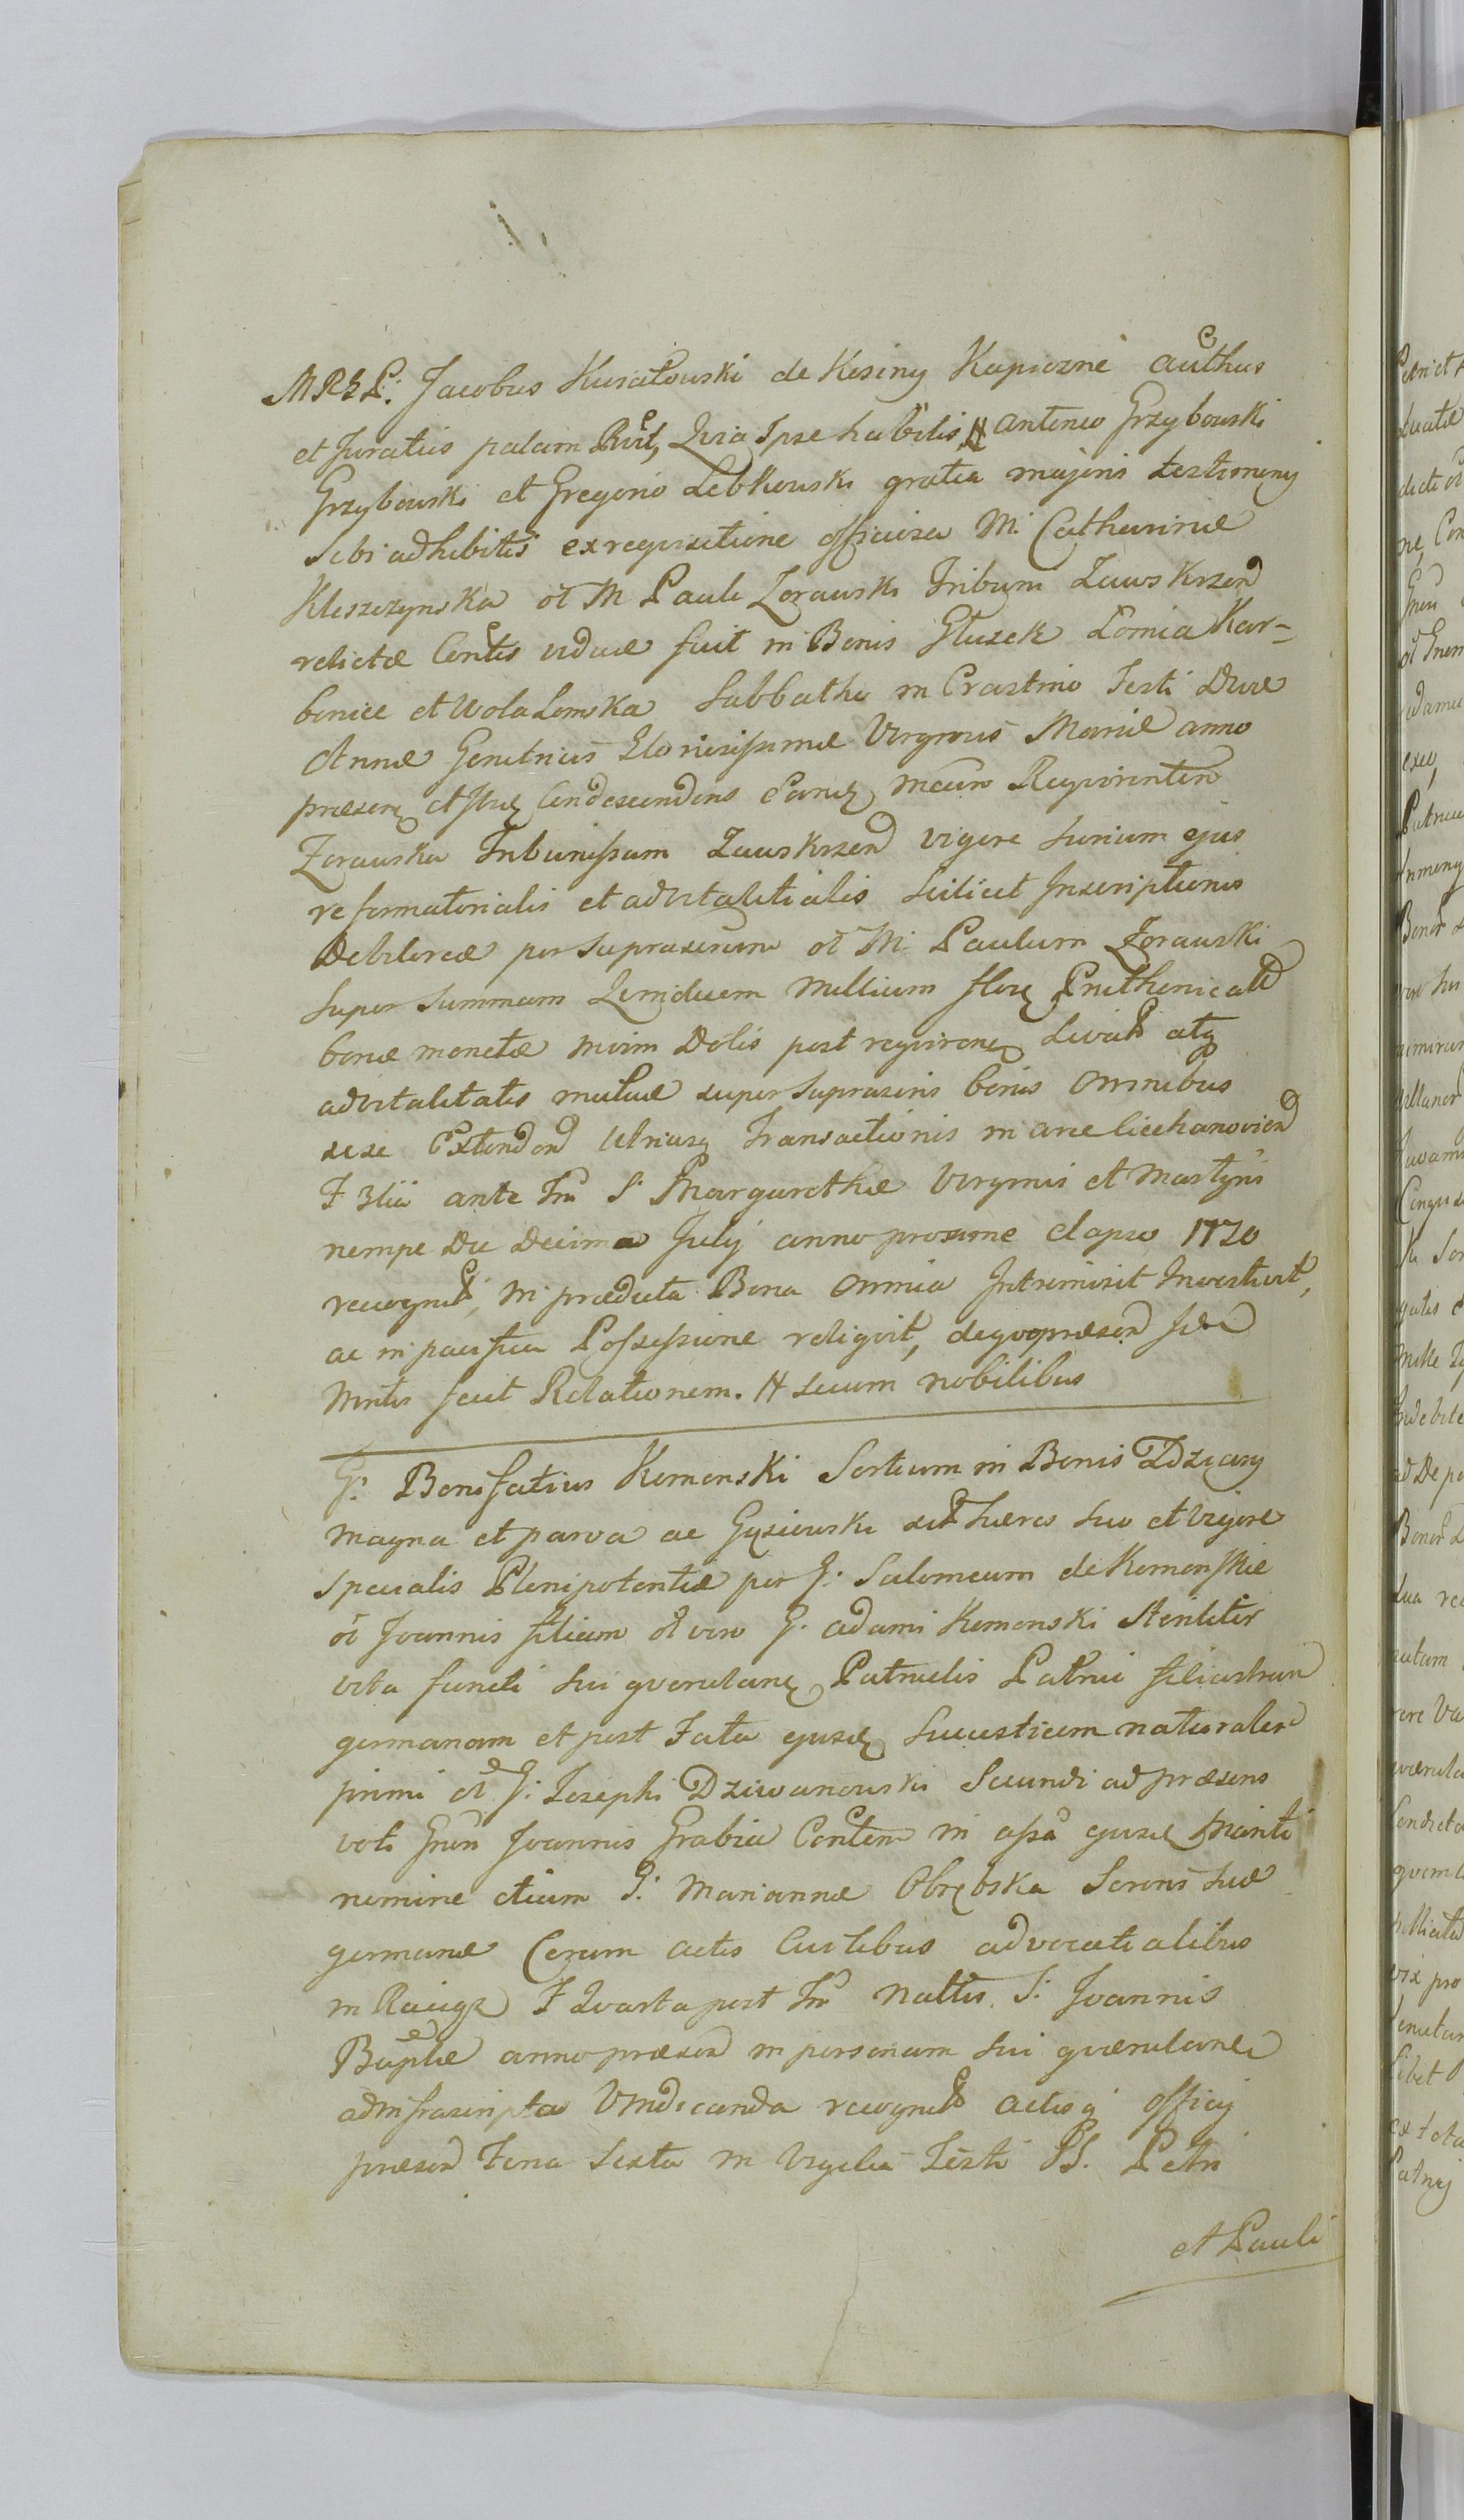 MRGL: Jacobus Kuratowski de Kosiny Kapiczne authus
et Juratus palam Rvit, Quia Ipse habitis # Antonio Grzybowski
Grzybowski et Gregorio Lebkowski gratia majoris testimony
Sibi adhibitis ex requisitione officiosa M. Catharinæ
Kleszczynska ol M Pauli Zorawski Tribuni Zawskrzen
relictæ Contis viduæ fuit in Bonis Gluzek Lomia Kar-
bonice et Wola Lomska Sabbatho in Crastino Festi Divæ
Annæ Genitricis Gloriosissimæ Virginis Mariæ anno
præsen et Condescendens eand mcam Requirenten
Zorawska Tribunissam Zawskrzen vigore Jurium ejus
reformatorialis et advitalitialis Scilicet Inscriptionis
Debitoreæ per Suprascrium ol M. Paulum Zorawski
super Summam Quindecem Millium flor Pruthenicali
bonæ monetæ moim Dolis post requiren atq
advitalitatis mutuæ super Suprascris bonis omnibus
sese Extenden Utriusq Transactionis in arce Ciechanovien
F 3tia ante Fm S. Margarethæ Virginis et Martyris
nempe Die Decima July anno proxime elapso 1720
recognit, in prædicta Bona omnia Intromisit Investivit,
ac in pacifica Possessione reliqvit, de qvo præsen
Mntis fecit Relationem. # secum nobilibus
G: Bonifatius Komonski Sortium in Bonis Zdziary
magna et parva ac Gysiewski Hæres Suo et Vigore
specialis Plenipotentiæ per G: Salomeam de Komonskie
ol Joannis filiam ol vero G. Adami Komonski Steriliter
vita functi sui qverulan Patruelis Patrui filiastram
germanam et post Fata ejusd naturalem
primi ol G: Josephi Dziwanowski Secundi ad præsens
voti Gnen Joannis Grabia Conten in assa ejusd Mariti
nomine etiam G: Mariannæ Obrębska Sororis Suæ
germanæ Coram actis Civilibus advocatialibus
in Raciąz F Qvarta post Fm Nattis S: Joannis
Baptæ anno præsen in personam sui qværulanei
ad infrascripta Vindicanda recognit actisq officy
præsen Feria Sexta in Vigilia Festi SS. Petri
et Pauli